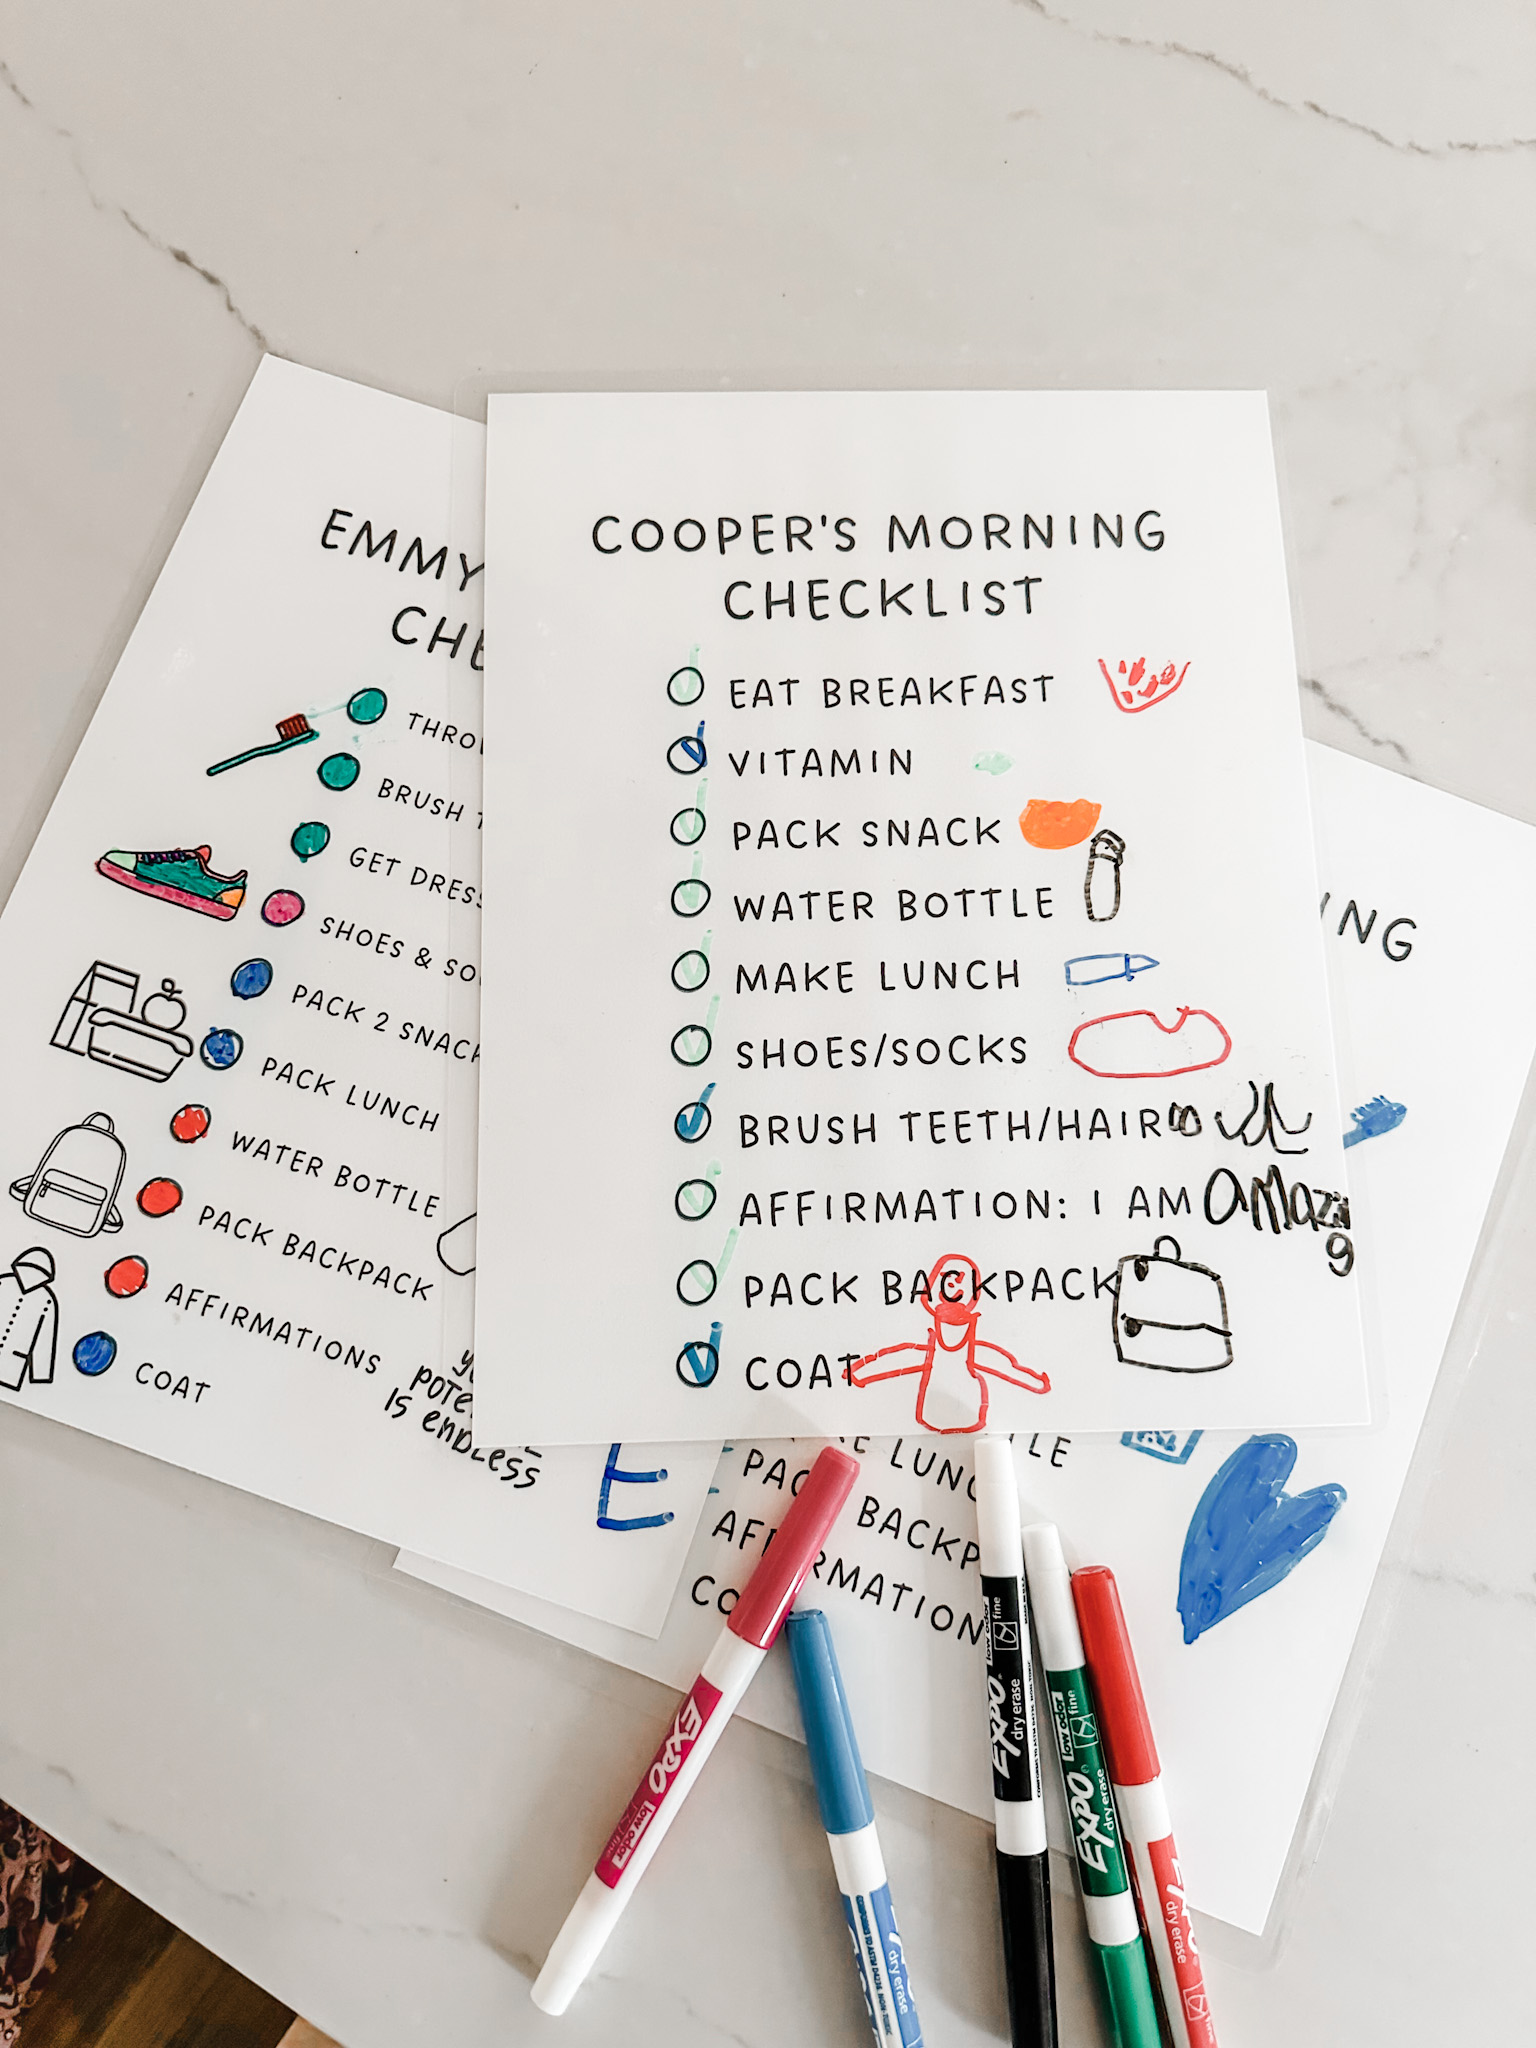 COOPER'S MORNING
CHECKLIST
EAT BREAKFAST
VITAMIN
PACK SNACK
WATER BOTTLE
MAKE LUNCH
SHOES/SOCKS
BRUSH TEETH/HAIR
AFFIRMATION: I AM AMazing
PACK BACKPACK
COAT
EMMY
CHE
THROW
BRUSH T
GET DRESS
SHOES & SO
PACK 2 SNACK
PACK LUNCH
WATER BOTTLE
PACK BACKPACK
AFFIRMATIONS
COAT
POTE
IS ENDLESS
E
ING
TLE
KE LUNC
PAC BACKP
AFFIRMATION
CO
EXPO
low odor
EXPO
dry erase
low odor
fine
EXPO
dry erase
low odor
fine
dry erase
EXPO
dry erase